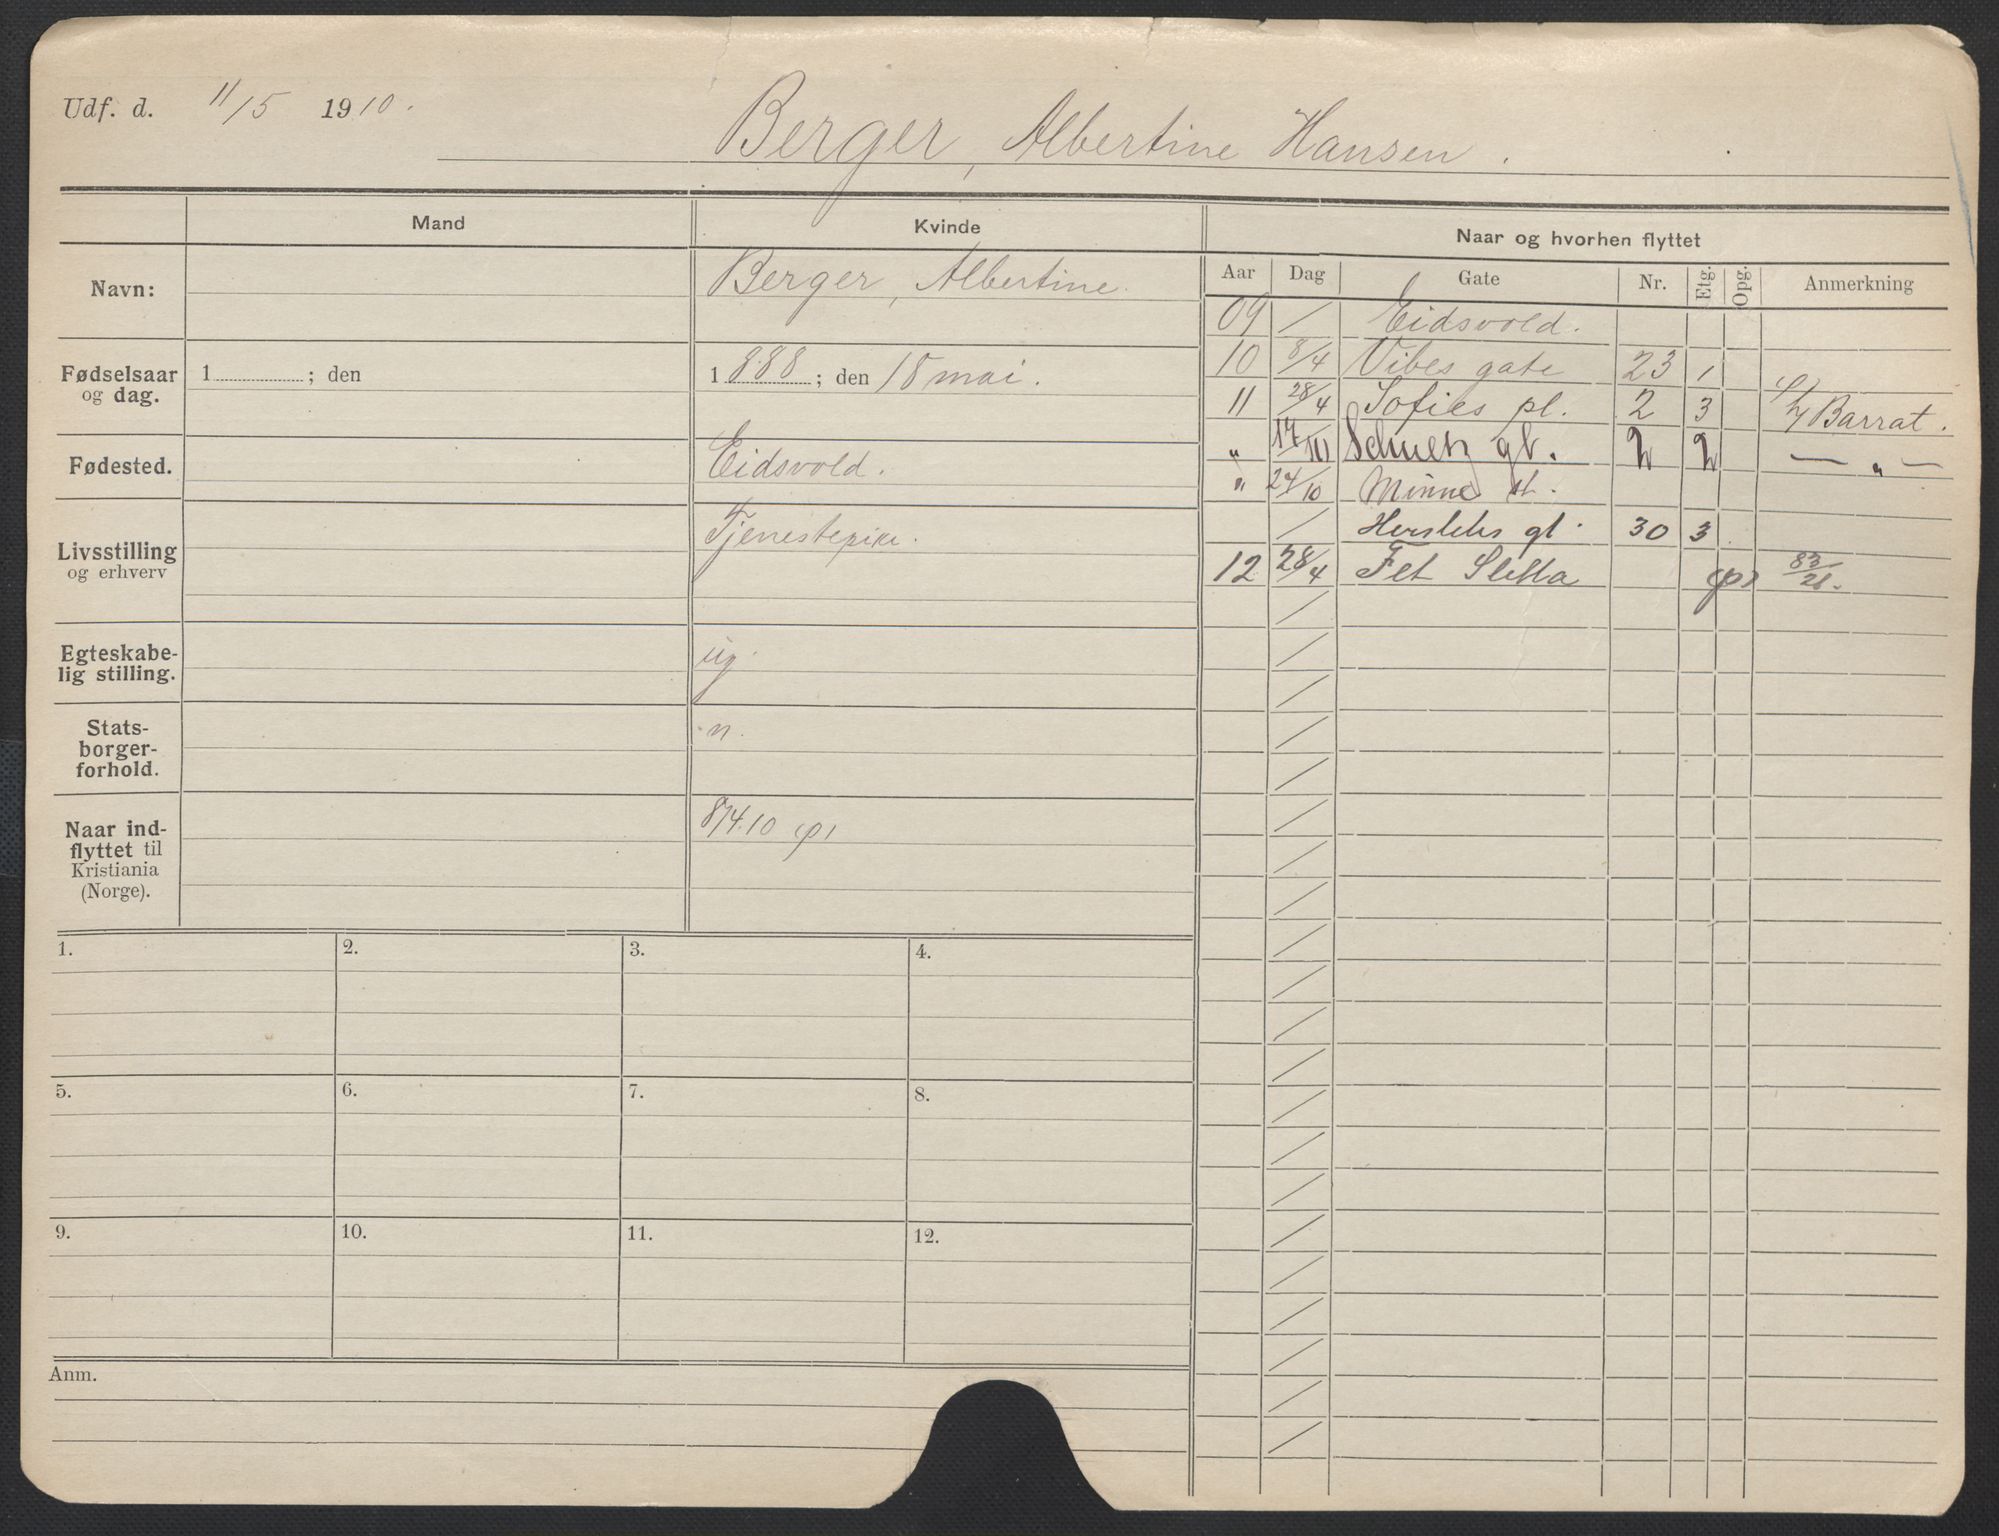 Udf. d. 11/5 1910.
Berger, Albertine Hansen.
Mand
Kvinde
Naar og hvorhen flyttet
Navn:
Berger, Albertine.
Aar Dag Gate Nr. Etg. Opg. Anmerkning
09 / Eidsvold.
10 8/4 Vibes gate 23 1
11 28/4 Sofies pl. 2 3 Barrat.
" 17/10 Schuetz gt. 2 2 — " —
" 24/10 Minne st.
/ Herslebs gt. 30 3
12 28/4 Fet Sletta (p) 83/26.
Fødselsaar
og dag.
1 ; den
1888; den 18 mai.
Fødested.
Eidsvold.
Livsstilling
og erhverv
Tjenestepike.
Egteskabe-
lig stilling.
ug.
Stats-
borger-
forhold.
n.
Naar ind-
flyttet til
Kristiania
(Norge).
8/4.10 (p)
1. 2. 3. 4.
5. 6. 7. 8.
9. 10. 11. 12.
Anm.